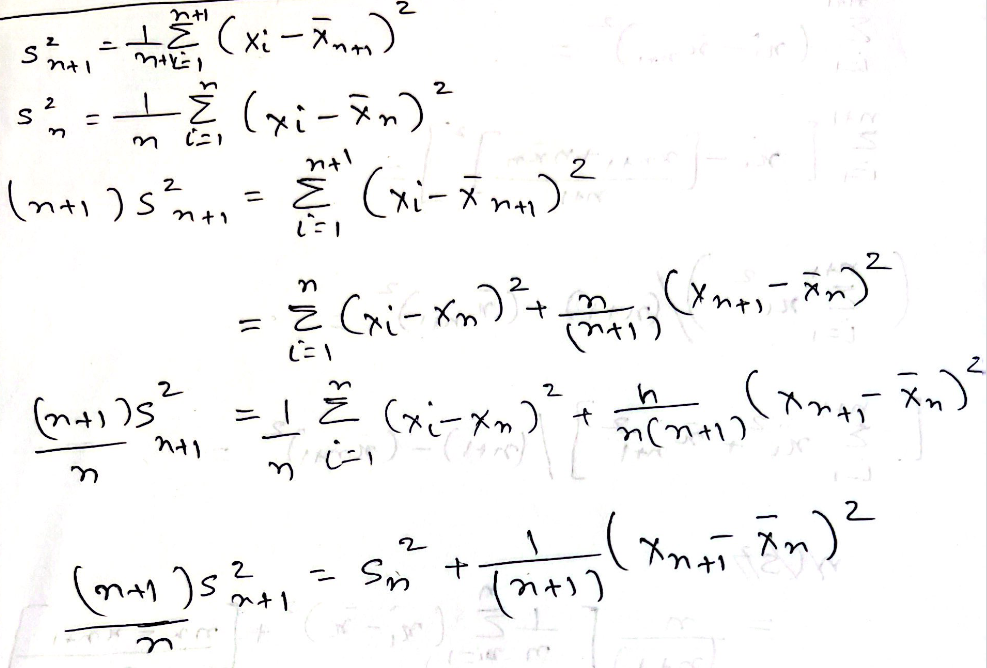 s²ₙ₊₁ = 1/(n+1) Σᵢ₌₁ⁿ⁺¹ (xi − x̄ₙ₊₁)²
s²ₙ = 1/n Σᵢ₌₁ⁿ (xi − x̄ₙ)²
(n+1)s²ₙ₊₁ = Σᵢ₌₁ⁿ⁺¹ (xi − x̄ₙ₊₁)²
= Σᵢ₌₁ⁿ (xi − xₙ)² + n/(n+1) (xₙ₊₁ − x̄ₙ)²
(n+1)s²ₙ₊₁/n = 1/n Σᵢ₌₁ⁿ (xi − xₙ)² + n/n(n+1) (xₙ₊₁ − x̄ₙ)²
(n+1)s²ₙ₊₁/n = sₙ² + 1/(n+1) (xₙ₊₁ − x̄ₙ)²